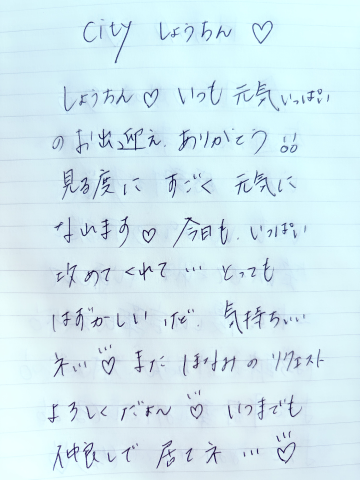 City しょうちん ♡
しょうちん ♡ いつも 元気いっぱい
のお出迎え、ありがとう !!
見る度に すごく 元気に
なれます ♡ 今日も、いっぱい
攻めてくれて … とっても
はずかしい けど、気持ちいい
ネ… ♡ また ほなみの リクエスト
よろしくだよん ♡ いつまでも
仲良しで 居てネ … ♡